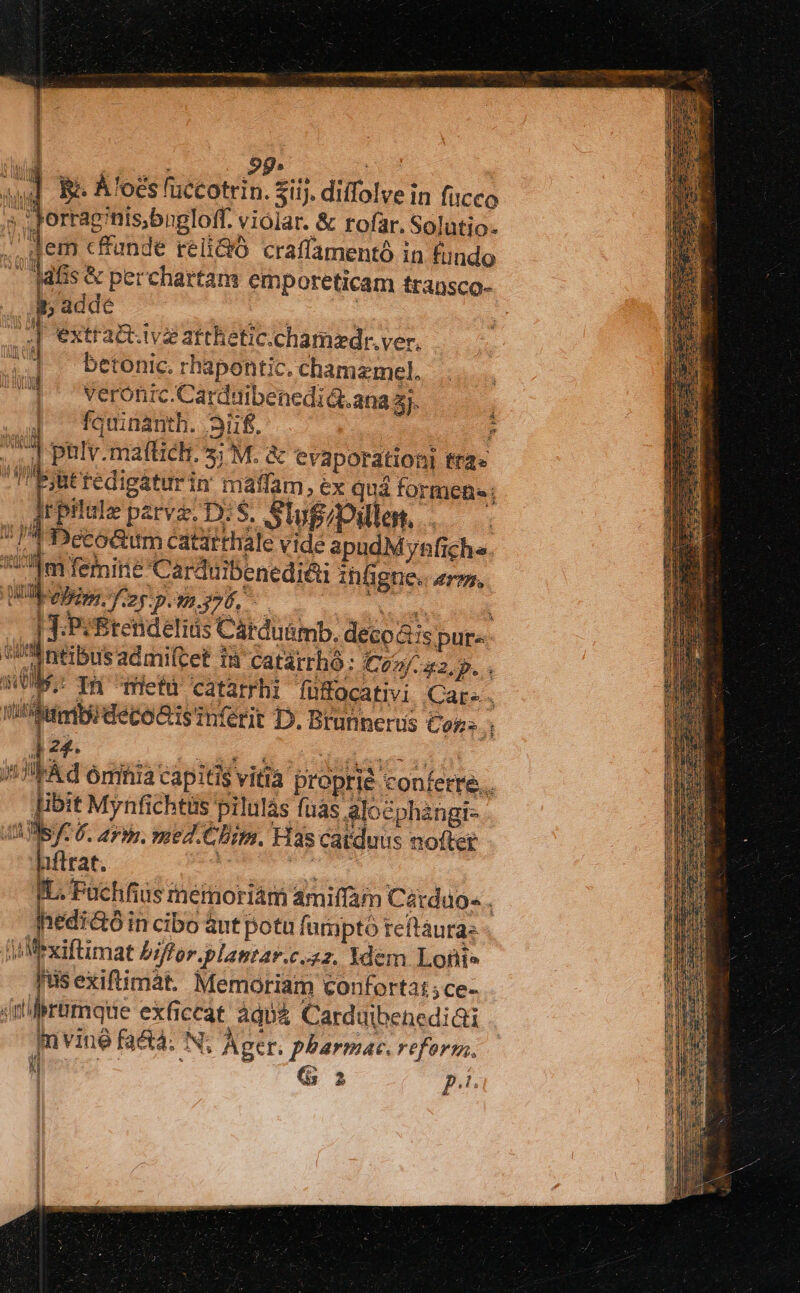 99.
℞. Aloës ſuccotrin. ℥iij. diſſolve in ſucco
borraginis, bugloſſ. violar. & roſar. Solutio-
nem effunde relictô craſſamentô in fundo
vaſis & per chartam emporeticam transco-
adde
extract. ivæ arthetic. chamædr. ver.
betonic. rhapontic. chamæmel.
veronic. Carduibenedict. ana ʒj.
ſquinanth. ℈iiß.
pulv. maſtich. ʒj M. & evaporationi tra-
ut redigatur in maſſam, ex quâ formen-
pilulæ parvæ. D. S. Fluß/Pillen.
Decoctum catarrhale vide apud Mynſich-
ſemine Carduibenedicti inſigne. arm.
chim. ſ. 25. p. m. 376.
J. P. Brendelius Carduûmb. decoctis pur-
admiſcet in catarrhô: Conſ. 42. p.
In metu catarrhi ſuffocativi Car-
decoctis inſerit D. Brunnerus Conſ.
24.
Ad omnia capitis vitia propriè conferre
Mynſichtus pilulas ſuas aloëphangi-
ſ. 6. arm. med. Chim. Has carduus noſter
L. Fuchſius memoriam amiſſam Carduo-
benedictô in cibo aut potu ſumptô reſtaura-
exiſtimat hiſtor. plantar. c. 42. Idem Loni-
exiſtimat. Memoriam confortat, ce-
exſiccat aquâ Carduibenedicti
vinô factâ. N. Ager. pharmac. reform.
G 2 p. 1.